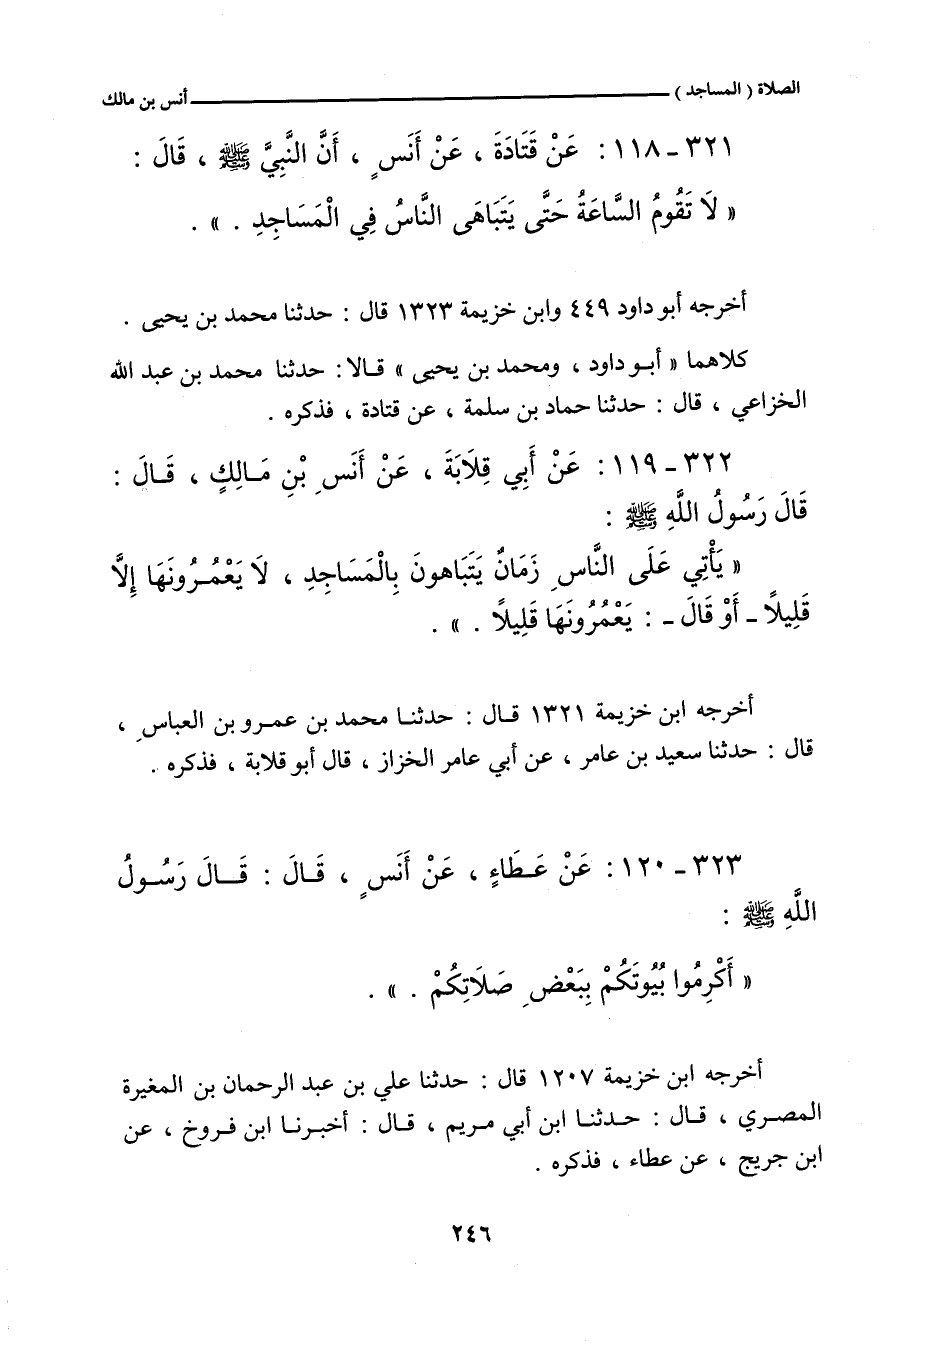 الصلاة ( المساجد ) ــــــــــــ أنس بن مالك
٣٢١ - ١١٨ : عَنْ قَتَادَةَ ، عَنْ أَنَسٍ ، أَنَّ النَّبِيَّ ﷺ ، قَالَ :
« لَا تَقُومُ السَّاعَةُ حَتَّى يَتَبَاهَى النَّاسُ فِي الْمَسَاجِدِ . » .
أخرجه أبو داود ٤٤٩ وابن خزيمة ١٣٢٣ قال : حدثنا محمد بن يحيى .
كلاهما « أبو داود ، ومحمد بن يحيى » قالا : حدثنا محمد بن عبد الله
الخزاعي ، قال : حدثنا حماد بن سلمة ، عن قتادة ، فذكره .
٣٢٢ - ١١٩ : عَنْ أَبِي قِلَابَةَ ، عَنْ أَنَسِ بْنِ مَالِكٍ ، قَالَ :
قَالَ رَسُولُ اللَّهِ ﷺ :
« يَأْتِي عَلَى النَّاسِ زَمَانٌ يَتَبَاهونَ بِالْمَسَاجِدِ ، لَا يَعْمُرُونَهَا إِلَّا
قَلِيلًا - أَوْ قَالَ - : يَعْمُرُونَهَا قَلِيلًا . » .
أخرجه ابن خزيمة ١٣٢١ قال : حدثنا محمد بن عمرو بن العباسِ ،
قال : حدثنا سعيد بن عامر ، عن أبي عامر الخزاز ، قال أبو قلابة ، فذكره .
٣٢٣ - ١٢٠ : عَنْ عَطَاءٍ ، عَنْ أَنَسٍ ، قَالَ : قَالَ رَسُولُ
اللَّهِ ﷺ :
« أَكْرِمُوا بُيُوتَكُمْ بِبَعْضِ صَلَاتِكُمْ . » .
أخرجه ابن خزيمة ١٢٠٧ قال : حدثنا علي بن عبد الرحمان بن المغيرة
المصري ، قال : حدثنا ابن أبي مريم ، قال : أخبرنا ابن فروخ ، عن
ابن جريج ، عن عطاء ، فذكره .
٢٤٦